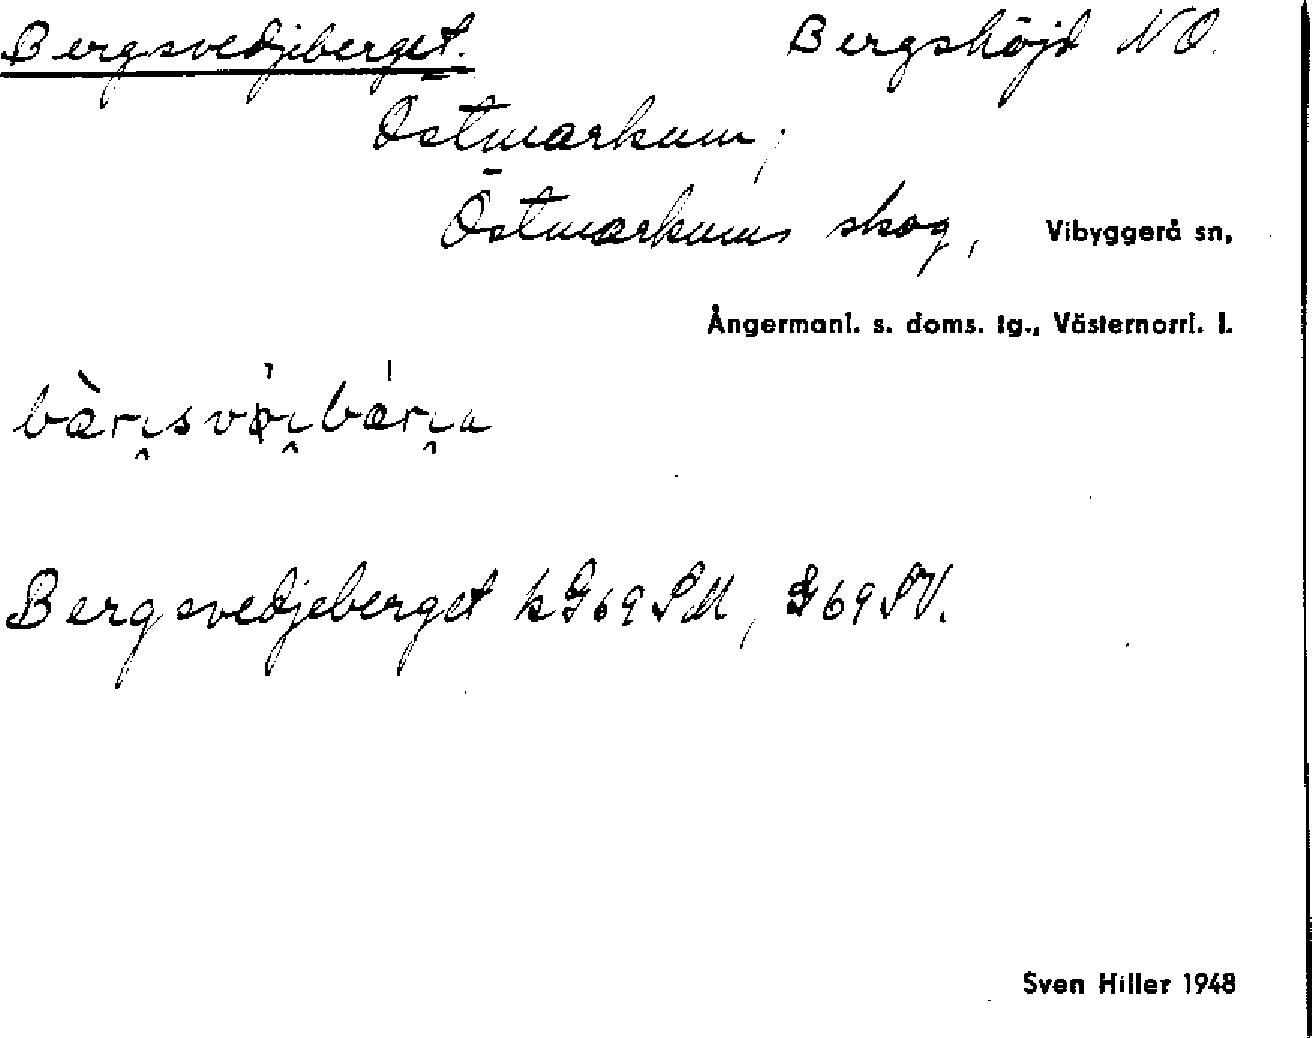 Bergsvedjeberget. Bergshöjd NO.
Östmarkum,
Östmarkums skog, Vibyggerå sn,
Ångermanl. s. doms. tg., Västernorrl. l.
Bergsvedjeberget k G69 SM, G69 SV.
Sven Hiller 1948